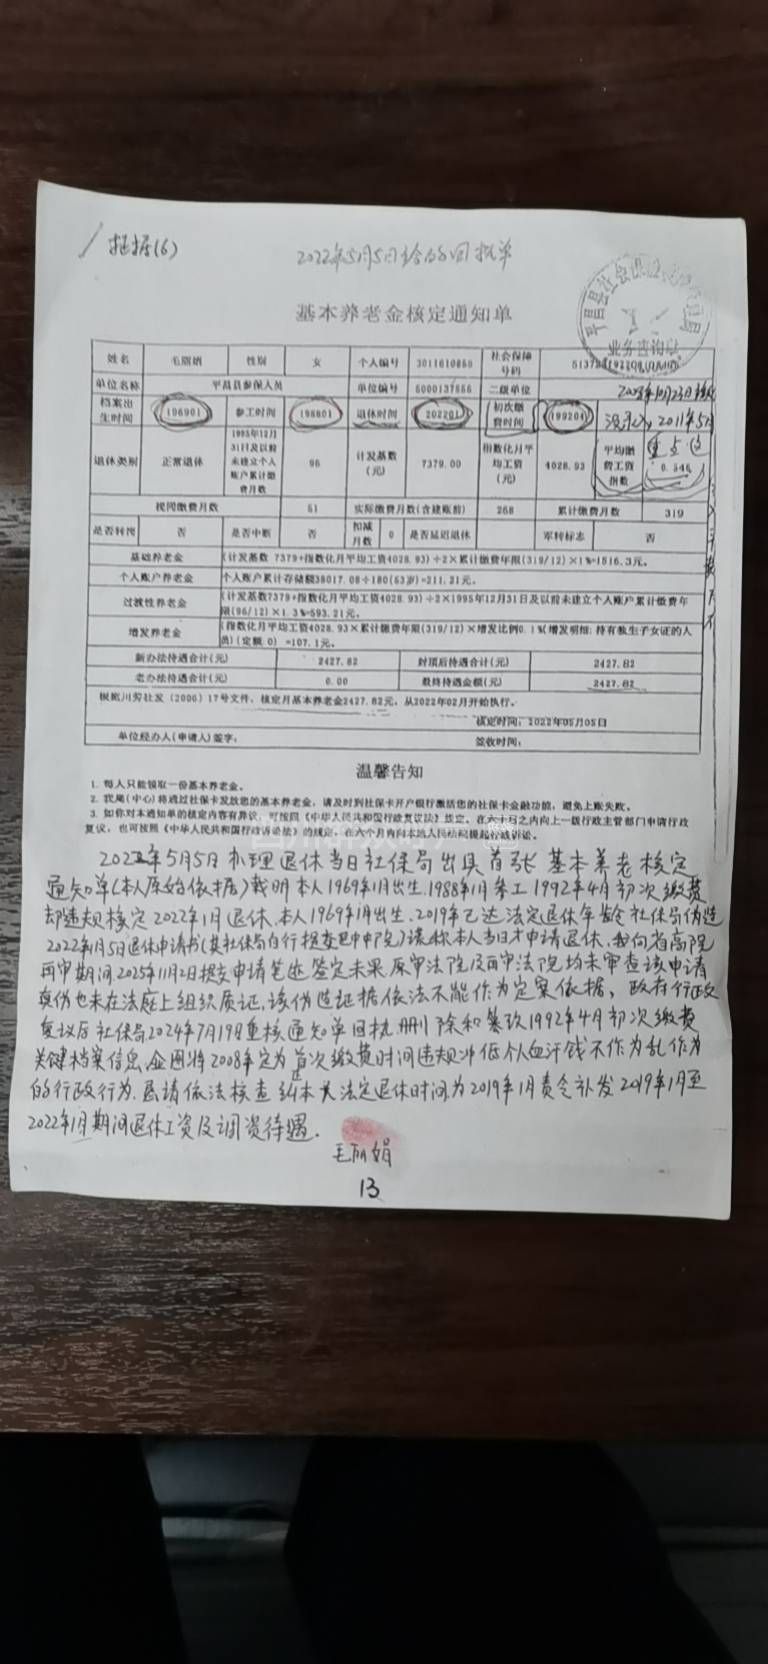 证据(6)
2022年5月5日给的回执单
基本养老金核定通知单
平昌县社会保
业务咨询
姓名 毛丽娟 性别 女 个人编号 3011610850 社会保障号码
单位名称 平昌县参保人员 单位编号 5000137556 二级单位
档案出生时间 196901 参工时间 198801 退休时间 202201 初次缴费时间 199204
2011年5月
退休类别 正常退休 1995年12月31日及以前未建立个人账户累计缴费月数 96 计发基数(元) 7379.00 指数化月平均工资(元) 4028.93 平均缴费工资指数 0.546
重点
视同缴费月数 51 实际缴费月数(含建账前) 268 累计缴费月数 319
是否特岗 否 是否中断 否 扣减月数 0 是否延迟退休 军转标志 否
基础养老金 (计发基数 7379+指数化月平均工资4028.93)÷2×累计缴费年限(319/12)×1%=1516.3元。
个人账户养老金 个人账户累计存储额38017.08÷180(53岁)=211.21元。
过渡性养老金 (计发基数7379+指数化月平均工资4028.93)÷2×1995年12月31日及以前未建立个人账户累计缴费年限(96/12)×1.3%=593.21元。
增发养老金 (指数化月平均工资4028.93×累计缴费年限(319/12)×增发比例0.1%(增发明细:持有独生子女证的人员)(定额.0)=107.1元。
新办法待遇合计(元) 2427.82 封顶后待遇合计(元) 2427.82
老办法待遇合计(元) 0.00 最终待遇金额(元) 2427.82
根据川劳社发(2006)17号文件,核定月基本养老金2427.82元,从2022年02月开始执行。
核定时间:2022年05月05日
单位经办人(申请人)签字: 签收时间:
温馨告知
1. 每人只能领取一份基本养老金。
2. 我局(中心)将通过社保卡发放您的基本养老金,请及时到社保卡开户银行激活您的社保卡金融功能,避免上账失败。
3. 如你对本通知单的核定内容有异议,可按照《中华人民共和国行政复议法》规定,在六十日之内向上一级行政主管部门申请行政
复议,也可按照《中华人民共和国行政诉讼法》的规定,在六个月内向本地人民法院提起行政诉讼。
2022年5月5日办理退休当日社保局出具首张基本养老核定
通知单(本人原始依据)载明本人1969年1月出生.1988年1月参工1992年4月初次缴费
却违规核定2022年1月退休.本人1969年1月出生.2019年已达法定退休年龄社保局伪造
2022年1月5日退休申请书(某社保局自行提交巴中中院)谎称本人当日才申请退休.我向省高院
再审期间2025年11月2日提交申请笔迹鉴定未果原审法院及再审法院均未审查该申请
真伪也未在法庭上组织质证.该伪造证据依法不能作为定案依据。政府行政
复议后社保局2024年7月19日重核通知单回执删除和篡改1992年4月初次缴费
关键档案信息,企图将2008年定为首次缴费时间违规冲低个人血汗钱不作为乱作为
的行政行为.恳请依法核查纠正本人法定退休时间为2019年1月责令补发2019年1月至
2022年1月期间退休工资及调资待遇.
毛丽娟
13